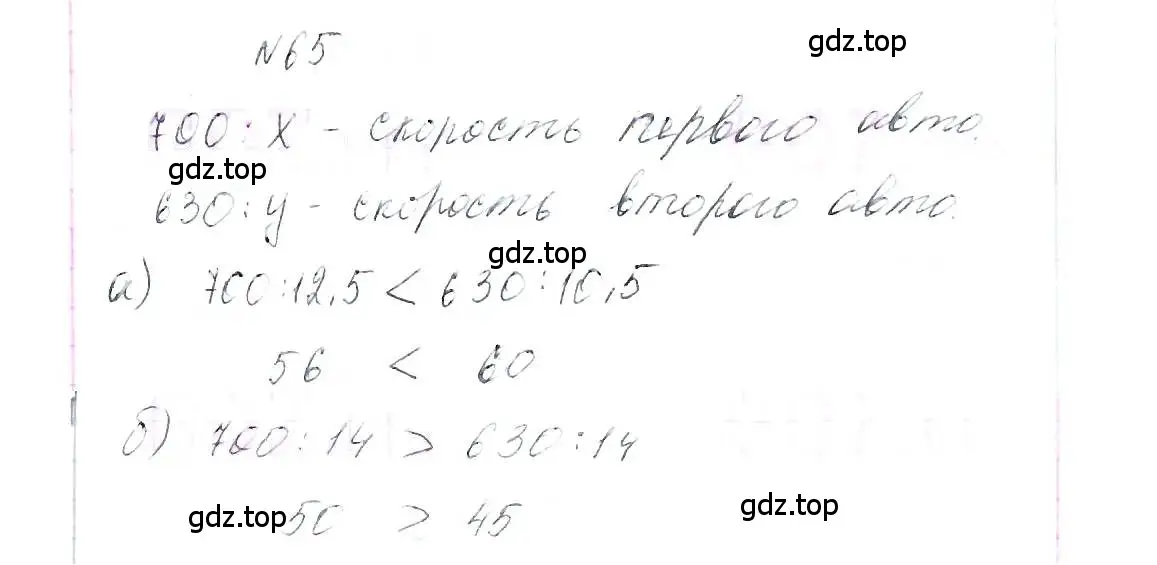 N65
gdz.top
700 : x - скорость первого авто.
gdz.top
630 : y - скорость второго авто.
gdz.top
а) 700:12,5 < 630:10,5
56 < 60
б) 700:14 > 630:14
gdz.top 50 > 45 gdz.top